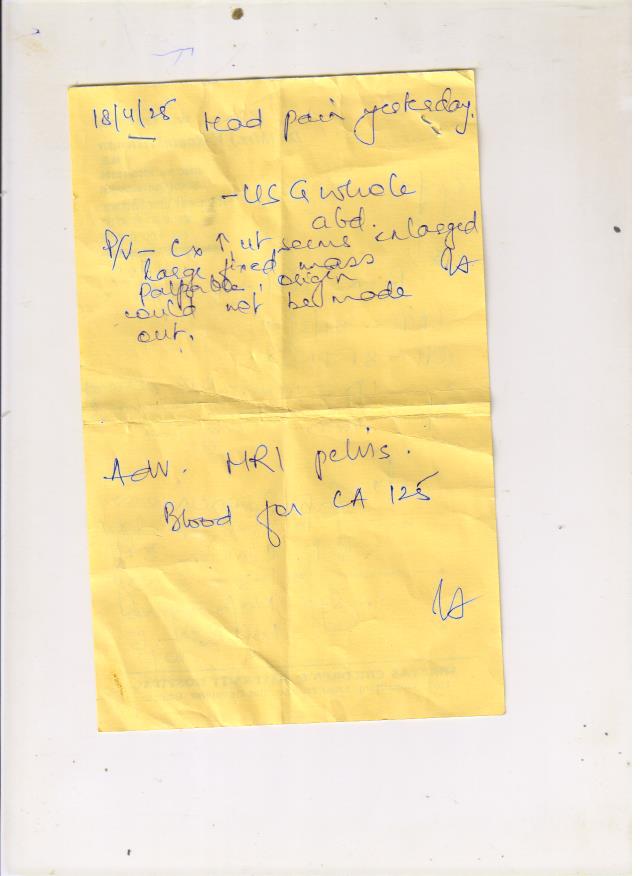 18/4/25 Had pain yesterday.
- USG whole
abd.
P/V - Cx ↑ ut, seems enlarged
Large fixed mass
palpable, origin
could not be made
out.
Adv. MRI pelvis.
Blood for CA 125